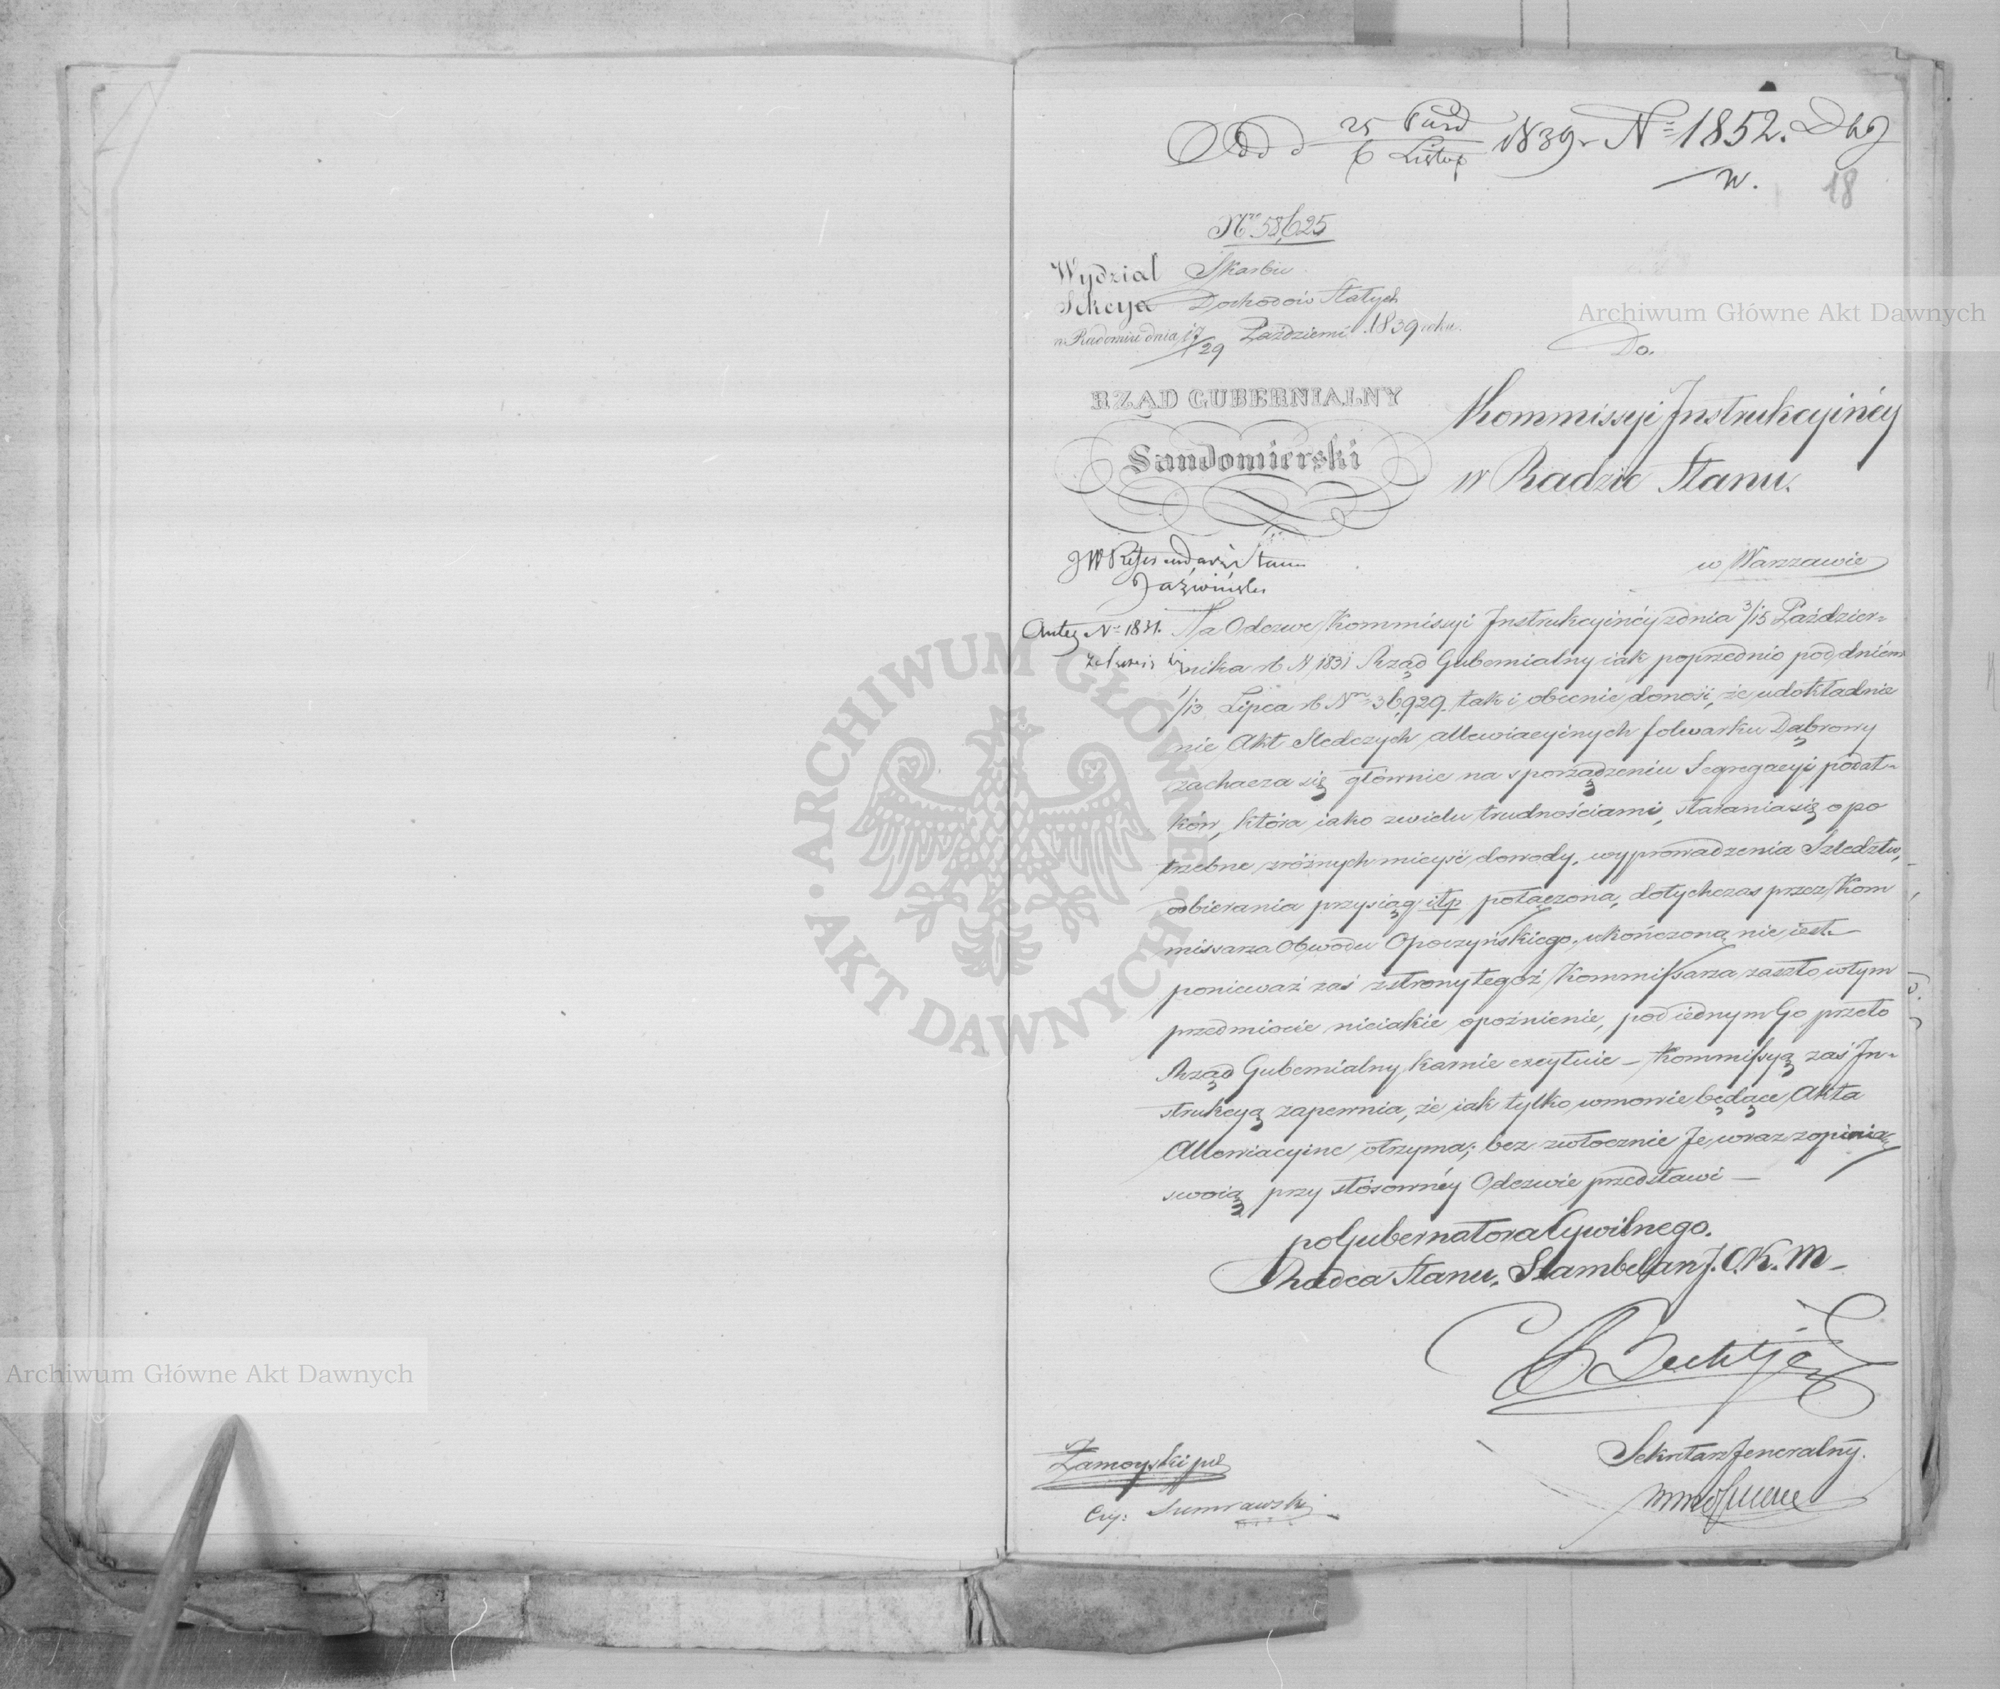 Odd d 25 Paźd / 6 Listop 1839 r N= 1852. Dbg
w.
18
Nro 58,625
Wydział Skarbu
Sekcya Dochodów Stałych
w Radomiu dnia 17/29 Październi. 1839 roku.
Do.
RZĄD GUBERNIALNY
Sandomierski
Kommissyi Instrukcyinéy
w Radzie Stanu.
w Warszawie
JW Referendarz Stanu
Jaźwiński
Anteq N= 1831.
Na Odezwę Kommissyi Instrukcyinéy zdnia 3/15 Paździer-
nika rb N 1831 Rząd Gubernialny iak poprzednio pod dniem
1/13 Lipca rb Nro 36,929. tak i obecnie donosi, że udokładnie
nie Akt Sledczych allewiacyinych folwarku Dąbrowy
zachacza się głównie na sporządzeniu Segregacyi podat-
ków, która iako zwielu trudnościami, starania się o po
trzebne zróżnych mieysc dowody, wyprowadzenia Szledztw,
odbierania przysiąg itp połączona, dotychczas przez Kom
missarza Obwodu Opoczyńskiego ukończoną nie iest.
ponieważ zaś zstrony tegoż Kommissarza zaszło wtym
przedmiocie nieiakie opoźnienie, pod iednym Go przeto
Rząd Gubernialny karnie excytuie – Kommissyą zaś In-
strukcyą zapewnia, że iak tylko wmowie będące Akta
Allewiacyine otrzyma; bez zwłocznie Je wraz zopinią
swoią przy stósownéy Odezwie przedstawi —
po Gubernatora Cywilnego.
Radca Stanu, Szambelan J. C. K. M –
Sekretarz Jeneralny.
Zamoyski
Archiwum Główne Akt Dawnych
Archiwum Główne Akt Dawnych
ARCHIWUM GŁÓWNE AKT DAWNYCH